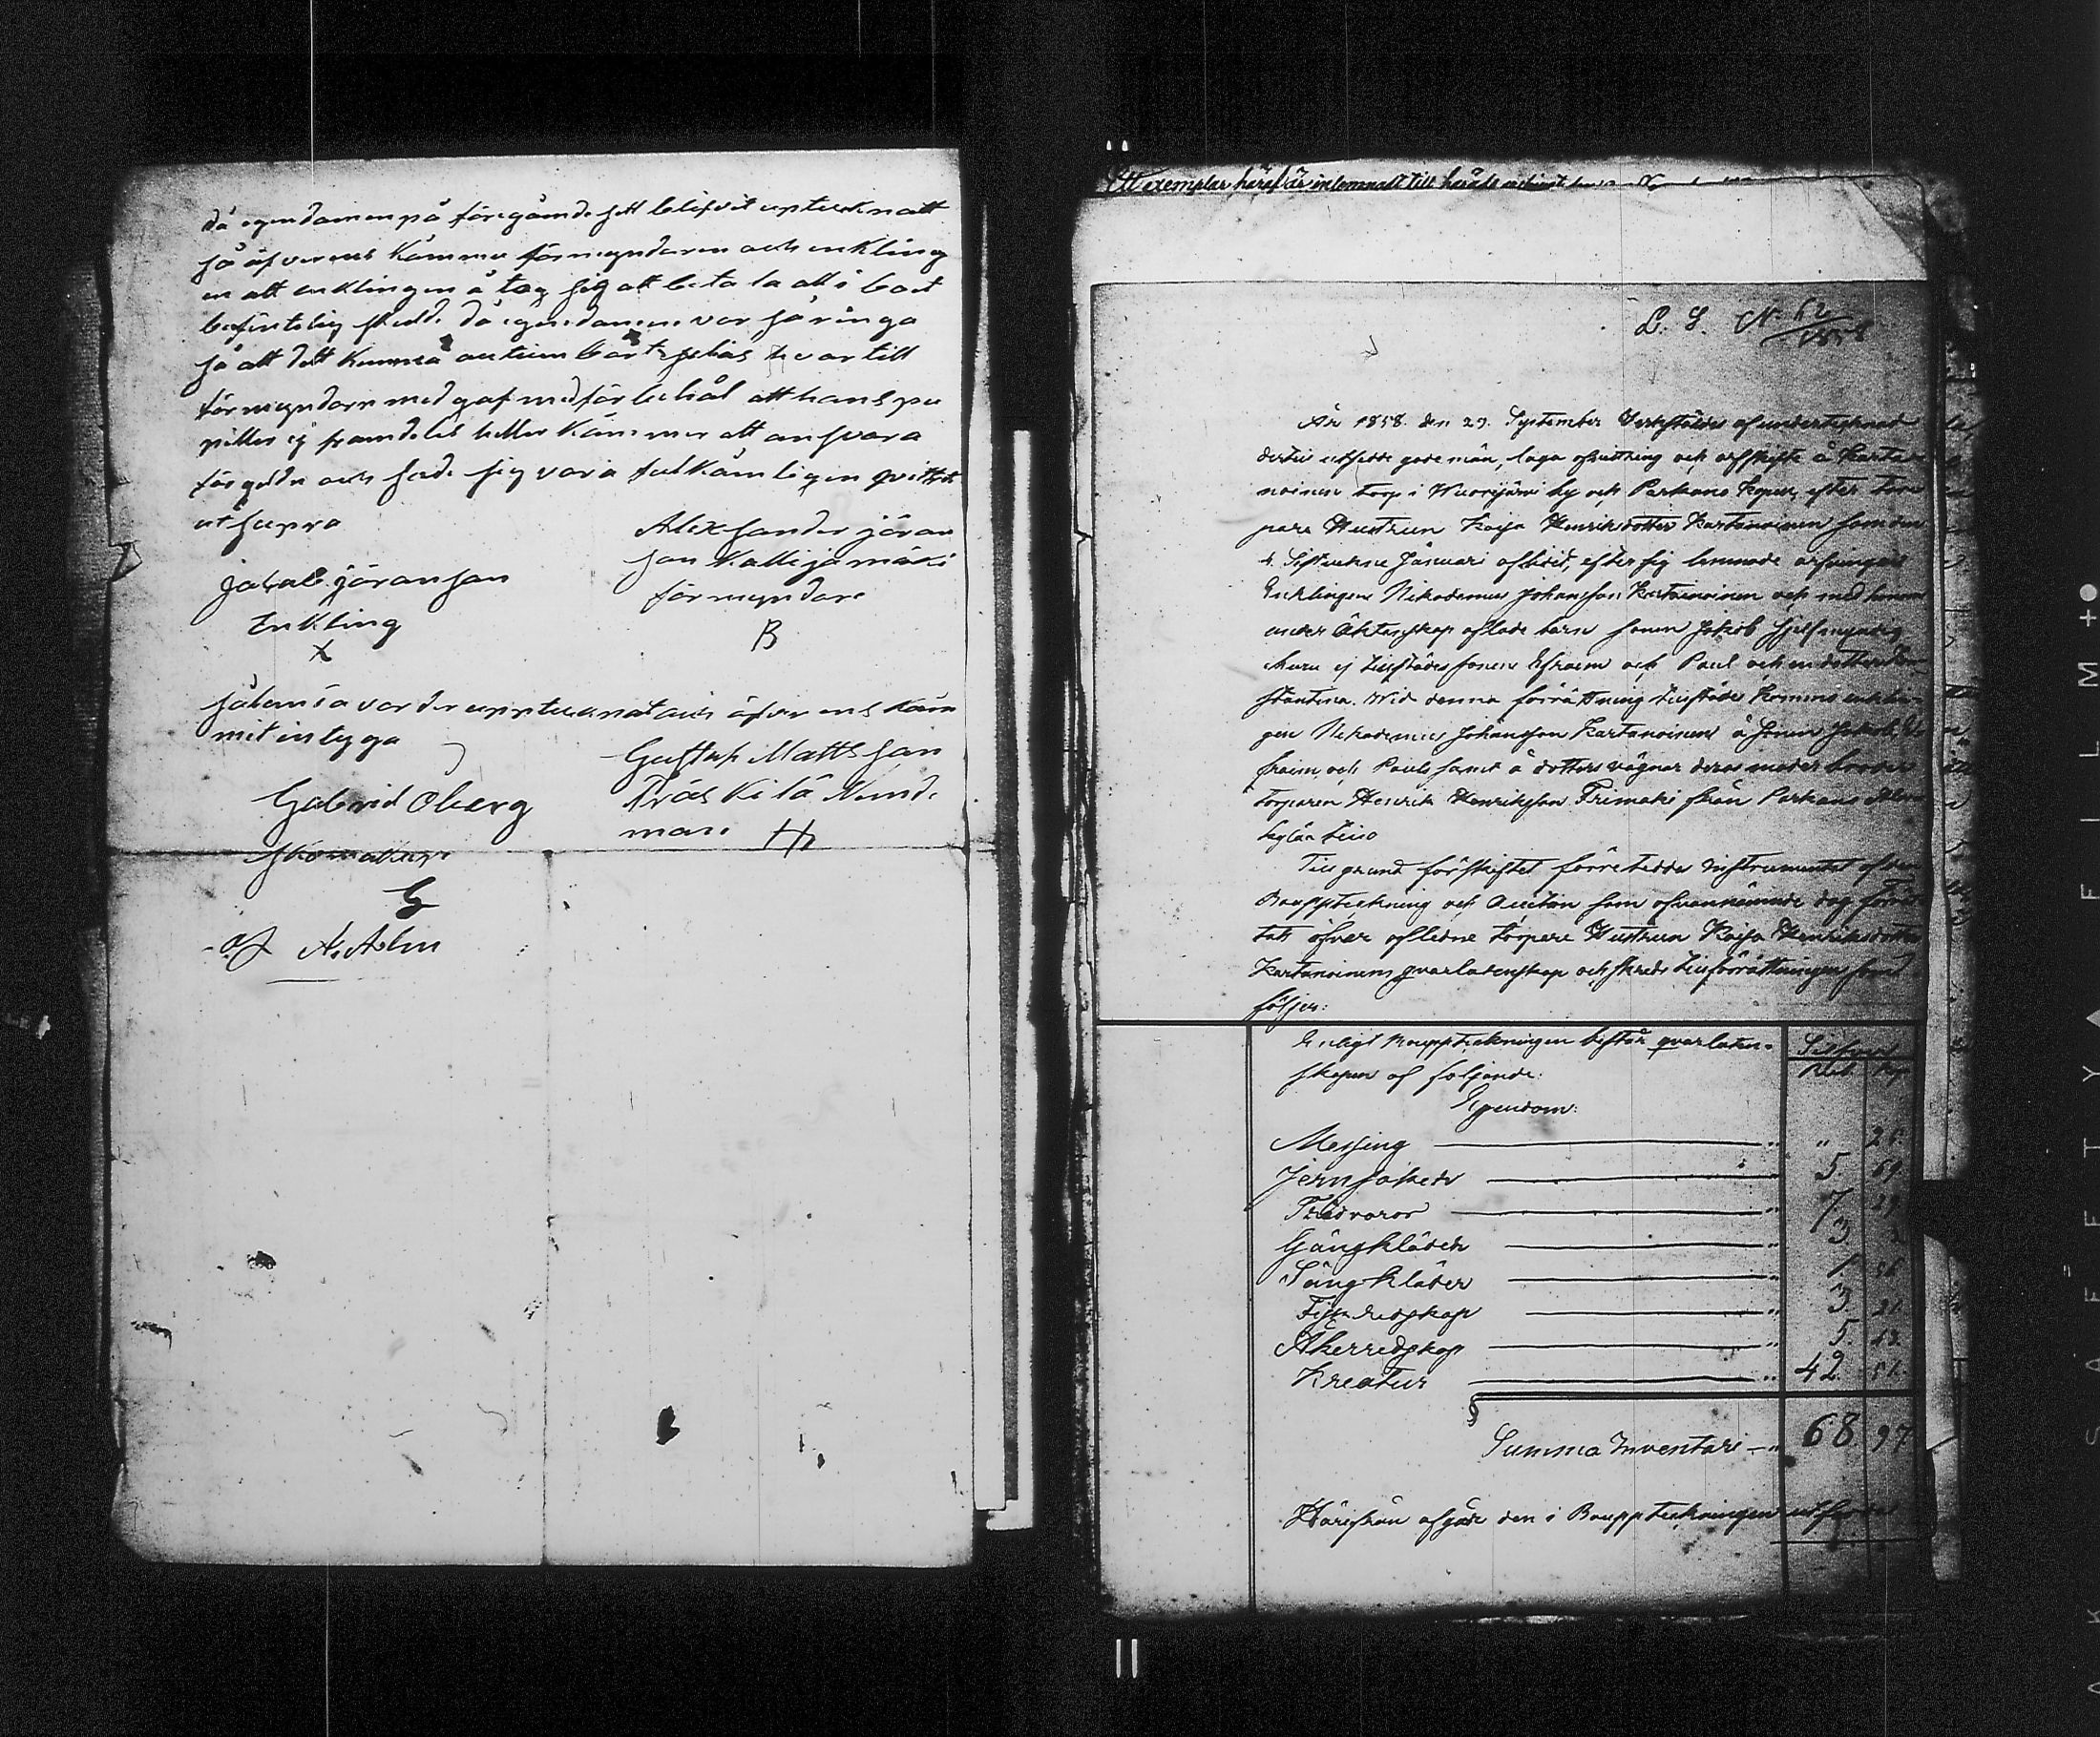 då egendomen på föregående sätt blifvit uptecknatt
så öfverens kommo förmyndaren och enkling
en att enklingen å tog sig att betala all i boet
befintelig skuld då egendomen var så ringa
så att dett kunna bortsäljas hvartill
förmyndarn medgaf med förbehål att hans pu
piller ej framdeles heller kommer att ansvara
för gelda och sade sig vara fulkomligen qvitterat
ut supra
Alexsander jöran
son Kallijamäki
förmyndare
B
jakob jöransson
Enkling
X
sålunda vorde upptecknat och öfverenskom
mit intyga
Gustaf Mattsson
Träskilä Nemnde
man
Gabriel Öberg
skomakare
G
af A. Alm
Ett exemplar häraf är inlemnadt till härads archivet
L. S. N. 62/1858
År 1858. den 29. September Verkstäldes af undertecknad
dertill utsedde gode män, laga afvittring och arfskifte å Karta
noinen torp i Wuorijärvi by och Parkano Kapell, efter torp
pare Hustrun Kaisa Henriksdotter Kartanoinen som den
4. Sistvekne Januari aflidit, efter sig lemnade arfvingar
Enklingen Nikodemus Johansson Kartanoinen och med honom
under Äktenskap aflade barn sonen Jakob sjelfmyndig
ehuru ej tillstädes sonen Efraim och Paul och en dotter Kon
stantina. Wid denna förrättning tillstädes komne enklin
gen Nikodemus Johansson Kartanoinen å sönen Jakob, E
fraim och Pauls samt å dotters vägnar deras moder broder
torparen Henrik Henriksson Frimaki från Parkano
by
Till grund för skiftet förreteddes instrumentet öfver
Bouppteckning och Auction som ofvannämnde dag förrät
tats öfver aflidne torpare Hustrun Kaisa Henriksdotter
Kartanoinens qvarlatenskap och skreds till förrättningen som
följer:
Enligt Bouppteckningen består qvarlaten-
skapen af följande:
Silfver
Rub. Kop.
Egendom:
Messing " 26.
Jernsaker 5 69.
Trädvaror 7 29.
Gångkläder 3
Sängkläder 1 56
Fiskredskap 3. 21.
Åkerredskap 5. 43.
Kreatur 42. 51.
Summa Inventarie 68. 97
Härifrån afgår den i Bouppteckningen